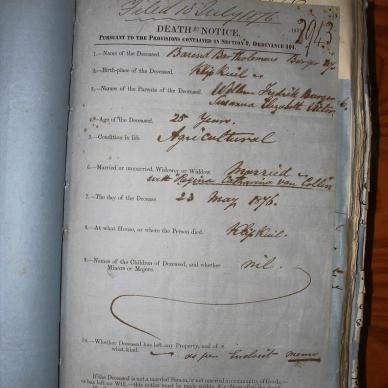 Filed 10 July 1876
2943
DEATH NOTICE.
PURSUANT TO THE PROVISIONS CONTAINED IN SECTION 9, ORDINANCE 104.
1.—Name of the Deceased. Barend Bartholomeus Burger
2.—Birth-place of the Deceased. Klip Kuil
3.—Names of the Parents of the Deceased. Willem Fredrik Burger &
Susanna Elizabeth
4.—Age of the Deceased. 25 Years.
5.—Condition in life. Agricultural
6.—Married or unmarried, Widower or Widow. Married
with Regina Catharina van
7.—The day of the Decease 23 May 1876.
8.—At what House, or where the Person died. Klip Kuil
9.—Names of the Children of Deceased, and whether nil.
Minors or Majors.
10.—Whether Deceased has left any Property, and of
what kind. as per
If the Deceased is not a married Person, or not married in community of Goods—